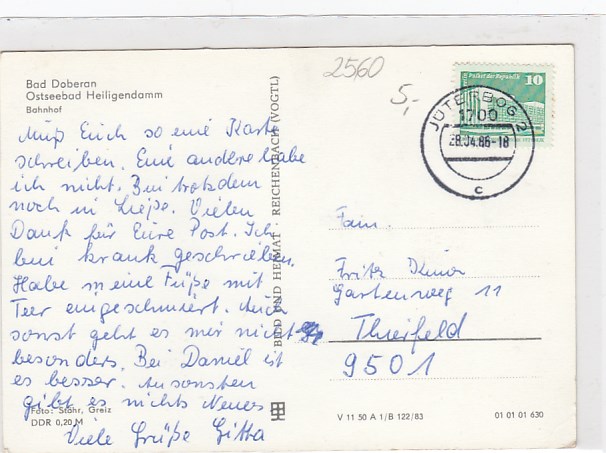 Bad Doberan
Ostseebad Heiligendamm
Bahnhof
Muß Euch so eine Karte
schreiben. Eine andere habe
ich nicht. Bin trotzdem
noch in Liepe. Vielen
Dank für Eure Post. Ich
bin krank geschrieben.
Habe meine Füße mit
Teer eingeschmiert. Auch
sonst geht es mir nicht
besonders. Bei Daniel ist
es besser. Ansonsten
gibt es nichts Neues
Viele Grüße Gitta
Foto: Stahr, Greiz
DDR 0,20 M
BILD UND HEIMAT REICHENBACH (VOGTL)
2560
5,-
Palast der Republik 10
JÜTERBOG 2
1700
28.04.86-18
c
Fam.
Fritz
Gartenweg 11
Thierfeld
9501
V 11 50 A 1/B 122/83
01 01 01 630